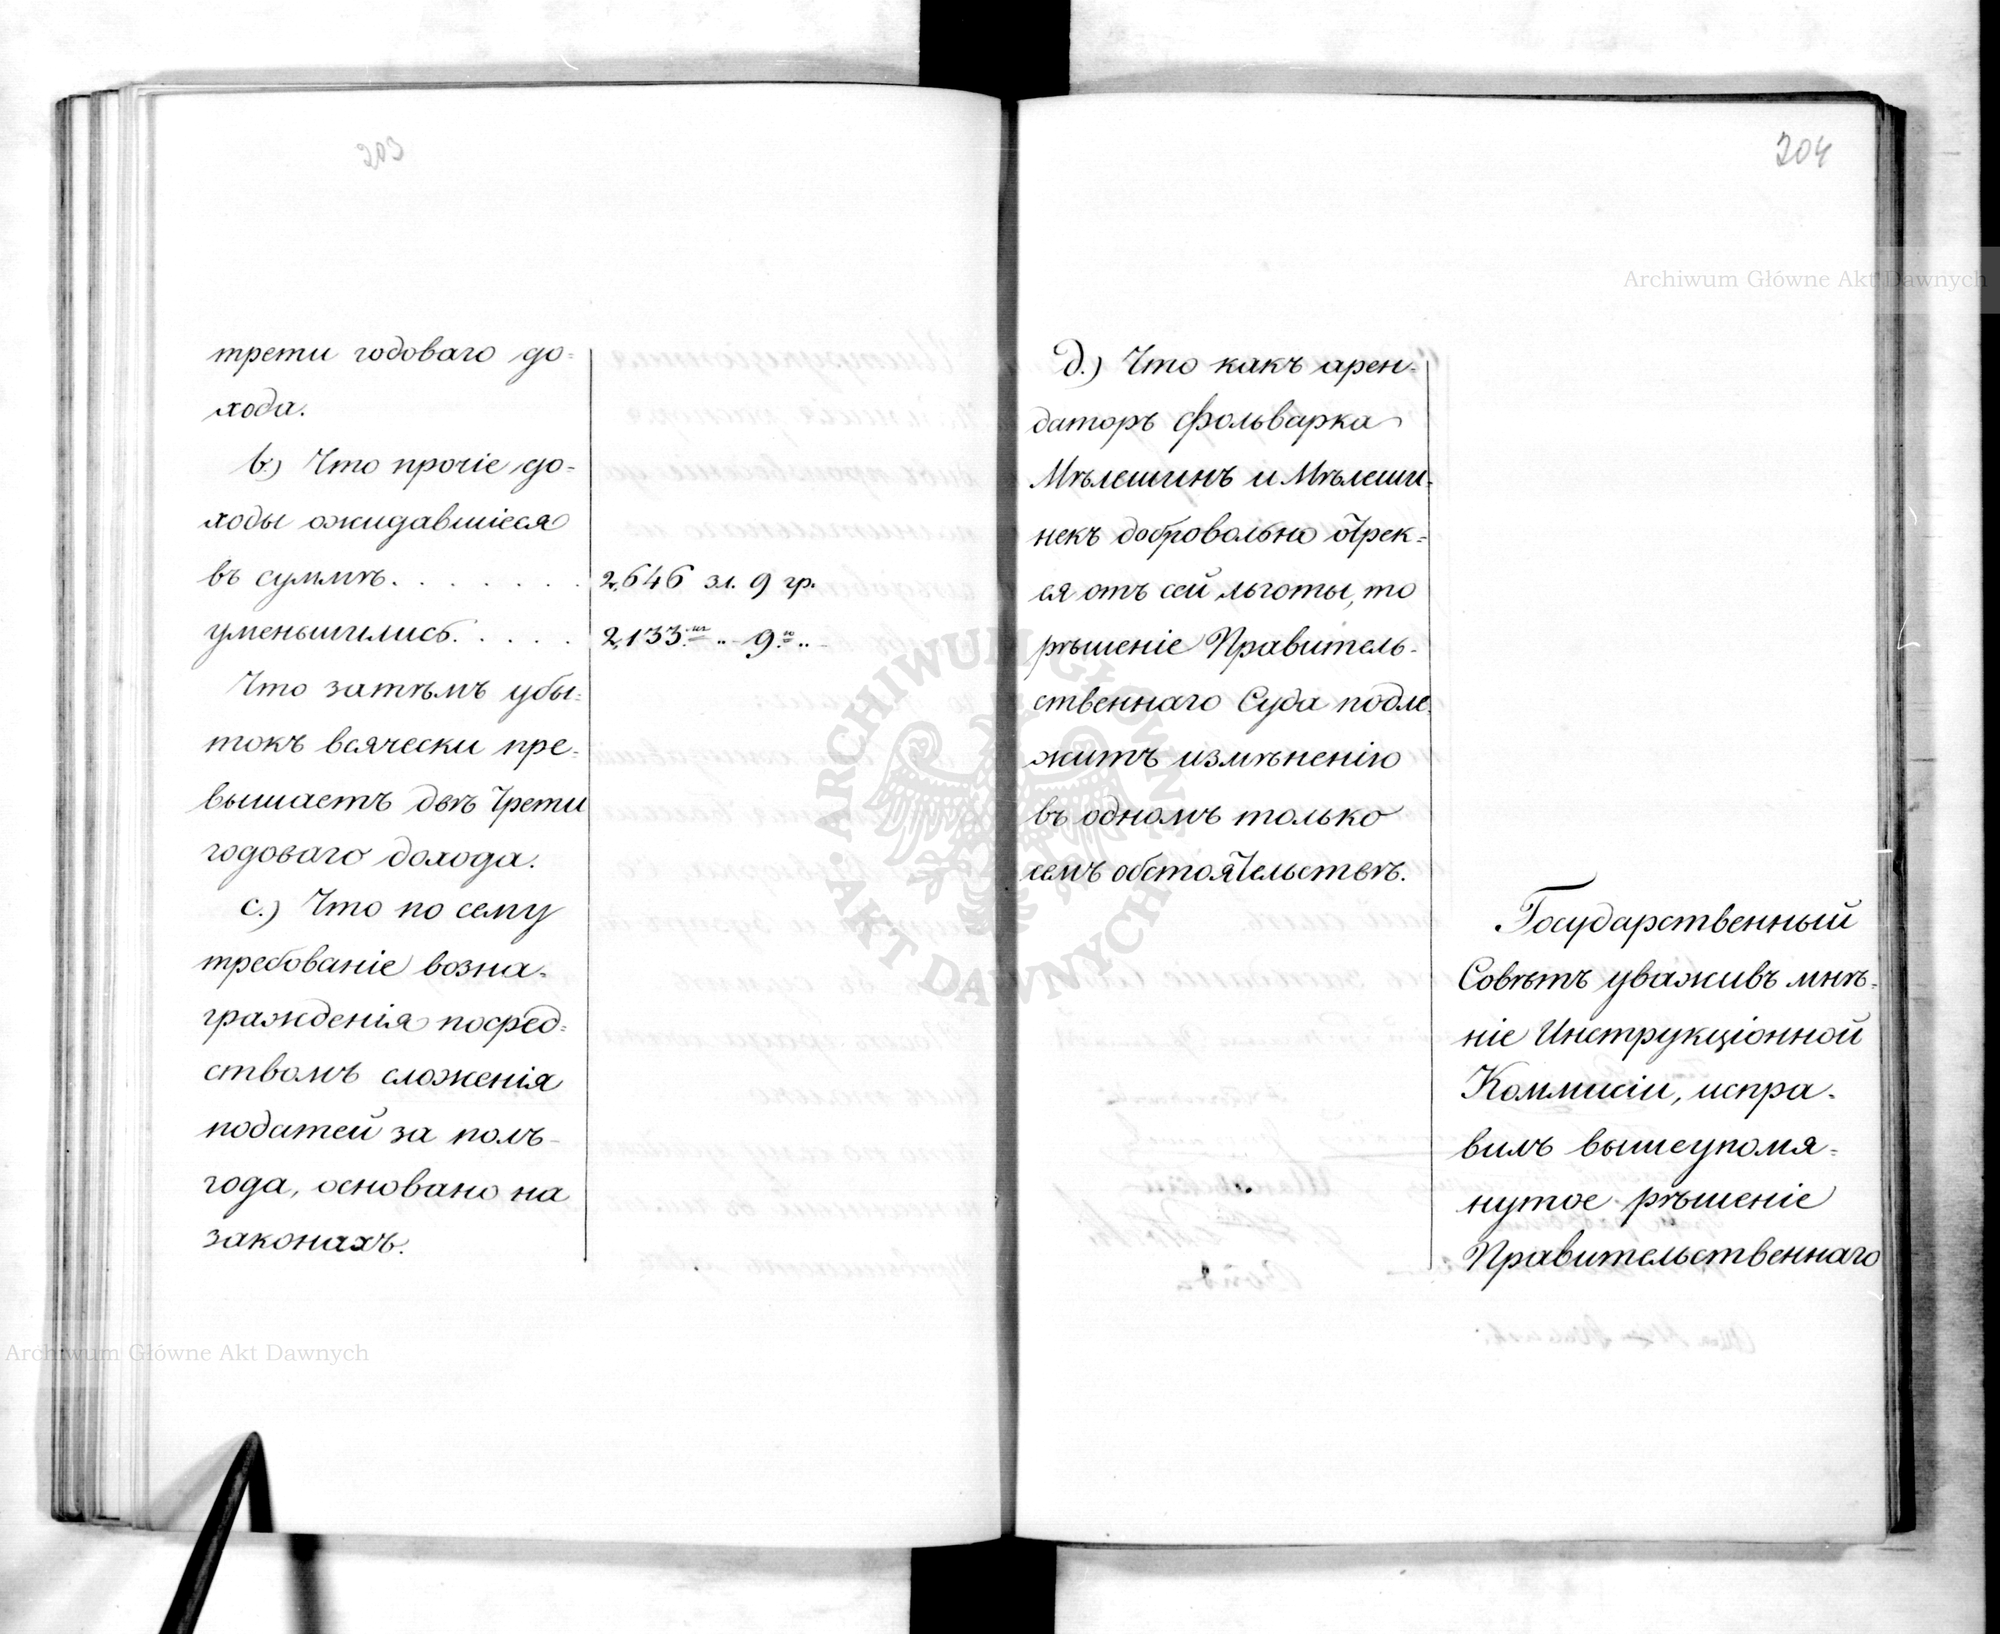 203
трети годоваго до-
хода.
b.) Что прочіе до-
ходы ожидавшіеся
въ суммѣ. . . . . . . 2,646 зл. 9 гр.
уменьшились. . . . . 2,133. " .. 9. " ..
Что затѣмъ убы-
токъ всячески пре-
вышаетъ двѣ трети
годоваго дохода.
c.) Что по сему
требованіе возна-
гражденія посред-
ствомъ сложенія
податей за полъ-
года, основано на
законахъ.
204
d.) Что какъ арен-
даторъ фольварка
Мѣлешинъ и Мѣлеши-
некъ добровольно отрек-
ся отъ сей льготы, то
рѣшеніе Правитель-
ственнаго Суда подле-
житъ измѣненію
въ одномъ только
семъ обстоятельствѣ.
Государственный
Совѣтъ уваживъ мнѣ-
ніе Инструкціонной
Коммисіи, испра-
вилъ вышеупомя-
нутое рѣшеніе
Правительственнаго
Archiwum Główne Akt Dawnych
Archiwum Główne Akt Dawnych
ARCHIWUM GŁÓWNE AKT DAWNYCH